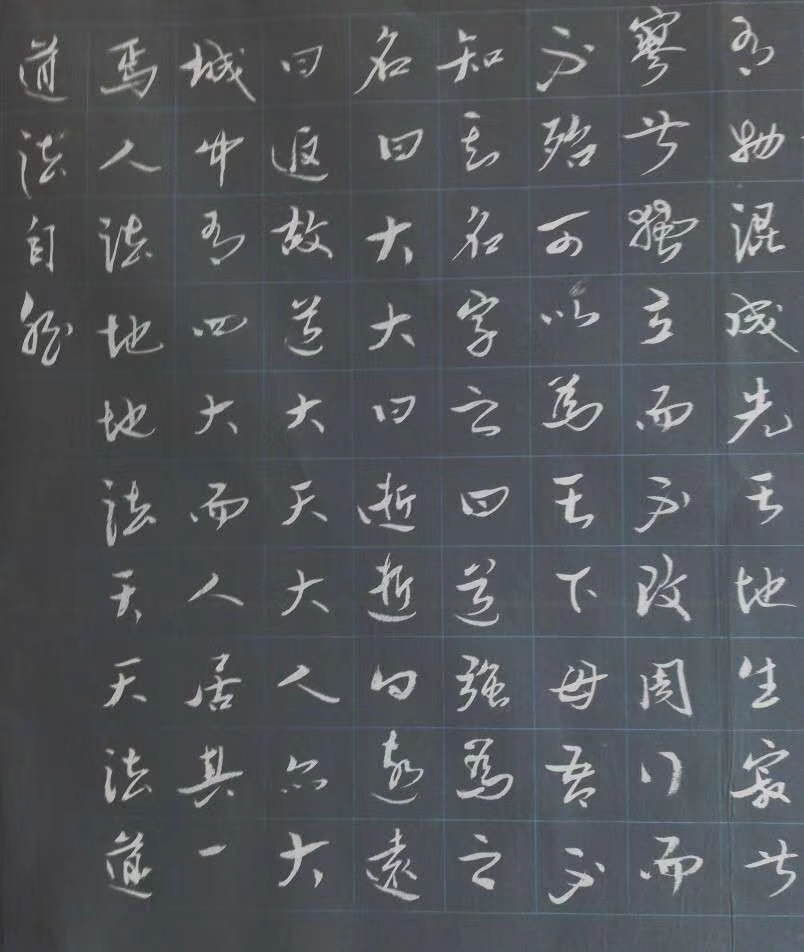 有物混成先天地生寂兮
寥兮獨立而不改周行而
不殆可以為天下母吾不
知其名字之曰道強為之
名曰大大曰逝逝曰遠遠
曰返故道大天大人亦大
城中有四大而人居其一
焉人法地地法天天法道
道法自然